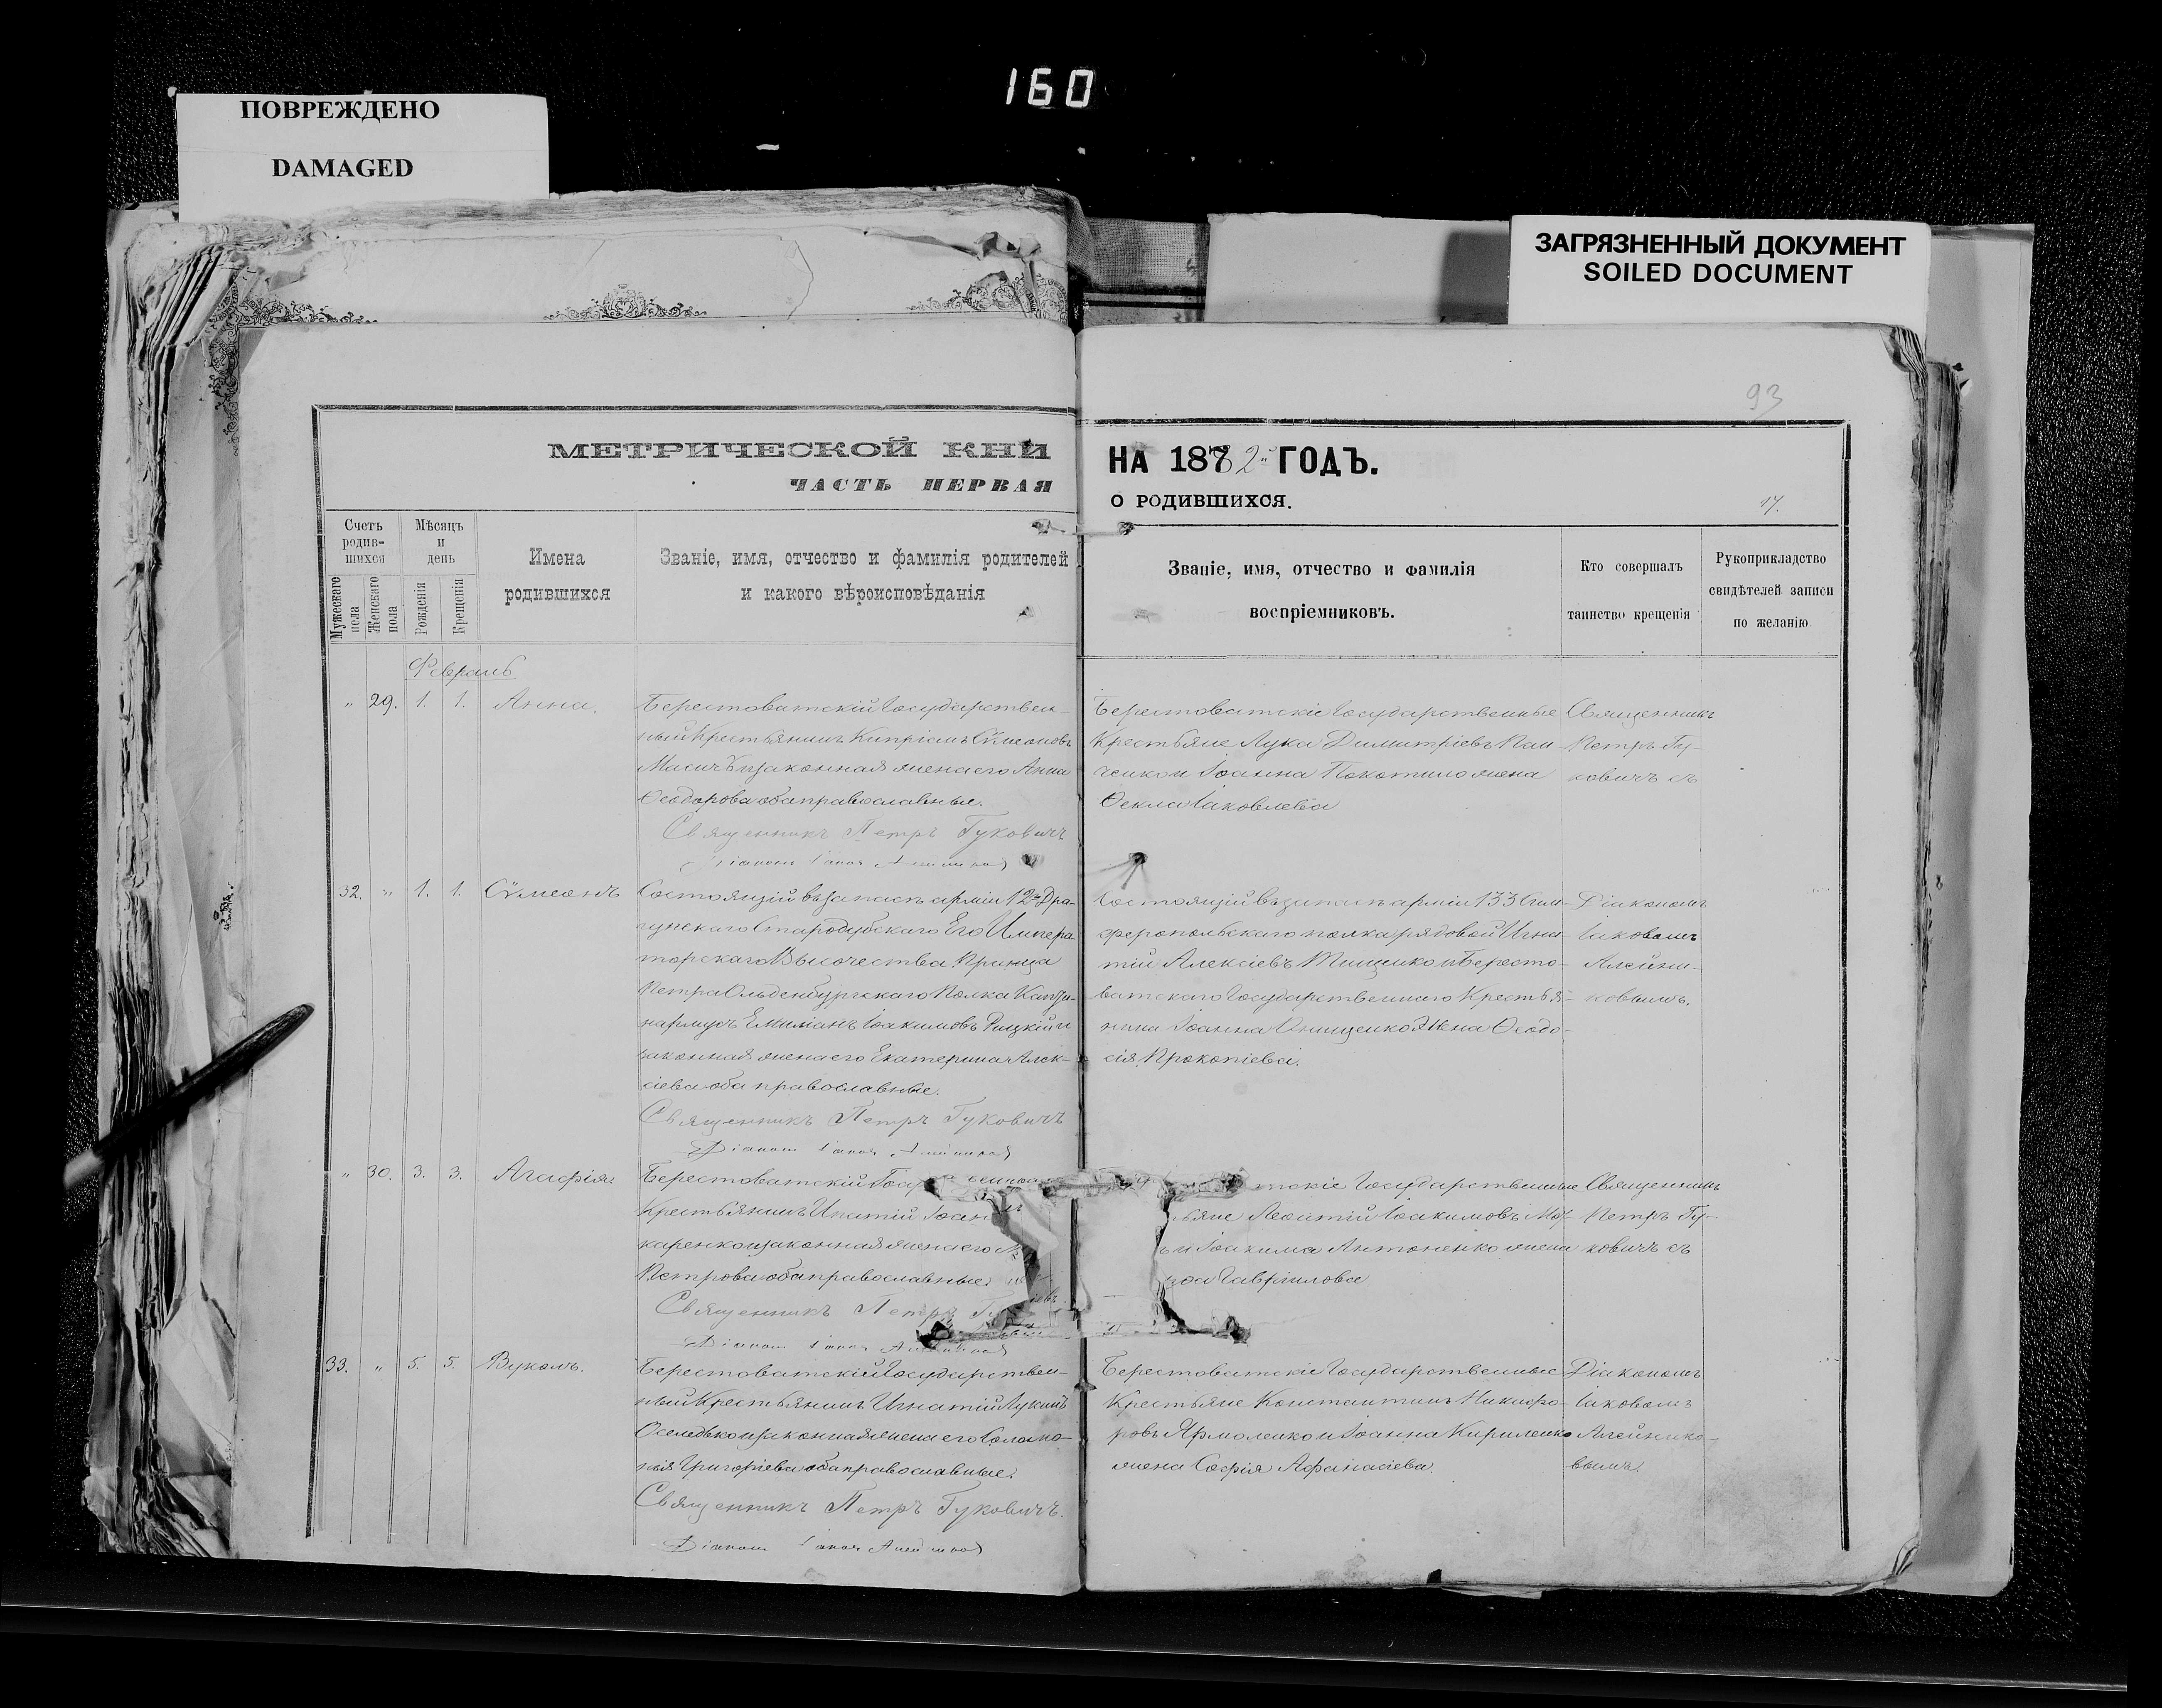 160
ПОВРЕЖДЕНО
DAMAGED
ЗАГРЯЗНЕННЫЙ ДОКУМЕНТ
SOILED DOCUMENT
93
МЕТРИЧЕСКОЙ КНИ
ЧАСТЬ ПЕРВАЯ
НА 1882 ГОДЪ.
О РОДИВШИХСЯ.
17.
Счетъ
родив-
шихся
Мужескаго
пола
Женскаго
пола
Мѣсяцъ
и
день
Рожденія
Крещенія
Имена
родившихся
Званіе, имя, отчество и фамилія родителей
и какого вѣроисповѣданія
Званіе, имя, отчество и фамилія
воспріемниковъ.
Кто совершалъ
таинство крещенія
Рукоприкладство
свидѣтелей записи
по желанію
Февраль
" 29. 1. 1. Анна.
Берестоватскій Государствен-
ный Крестьянинъ Кипріанъ Сѵмеоновъ
Масичъ и законная жена его Анна
Ѳеодорова оба православные.
Священникъ Петръ Гуковичъ
Берестоватскіе Государственные
Крестьяне Лука Димитріевъ Пан-
ченко и Іоанна Покотило жена
Ѳекла Іаковлева
Священникъ
Петръ Гу-
ковичъ съ
32. " 1. 1. Сѵмеонъ
Состоящій въ запасѣ арміи 12го Дра-
гунскаго Стародубскаго Его Импера-
торскаго Высочества Принца
Петра Ольденбургскаго Полка
Емиліанъ Іоакимовъ и
законная жена его Екатерина Алек-
сіева оба православные.
Священникъ Петръ Гуковичъ
Діаконъ
Состоящій въ запасѣ арміи 133 Сим-
феропольскаго полка рядовой Игна-
тій Алексіевъ Тищенко и Бересто-
ватскаго Государственнаго Крестья-
нина Іоанна Онищенко жена Ѳеодо-
сія Прокопіева.
Діакономъ
Іаковомъ
Алейни-
ковымъ.
" 30. 3. 3. Агафія
Берестоватскій Госу
Крестьянинъ Ипатій Іоан
каренко и законная жена его
Петрова оба православные.
Священникъ Петръ Гу
Діаконъ
тскіе Государственные
ьяне Леонтій Іоакимовъ
и Іоакима Антоненко жена
Гавріилова
Священникъ
Петръ Гу-
ковичъ съ
33. " 5. 5. Вуколъ.
Берестоватскій Государствен-
ный Крестьянинъ Игнатій Лукинъ
Оселедько и законная жена его Соломо-
нія Григоріева оба православные.
Священникъ Петръ Гуковичъ.
Діаконъ
Берестоватскіе Государственные
Крестьяне Константинъ Никифо-
ровъ Ярмоленко и Іоанна Кириленко
жена Софія Афанасіева.
Діакономъ
Іаковомъ
Алейнико-
вымъ.